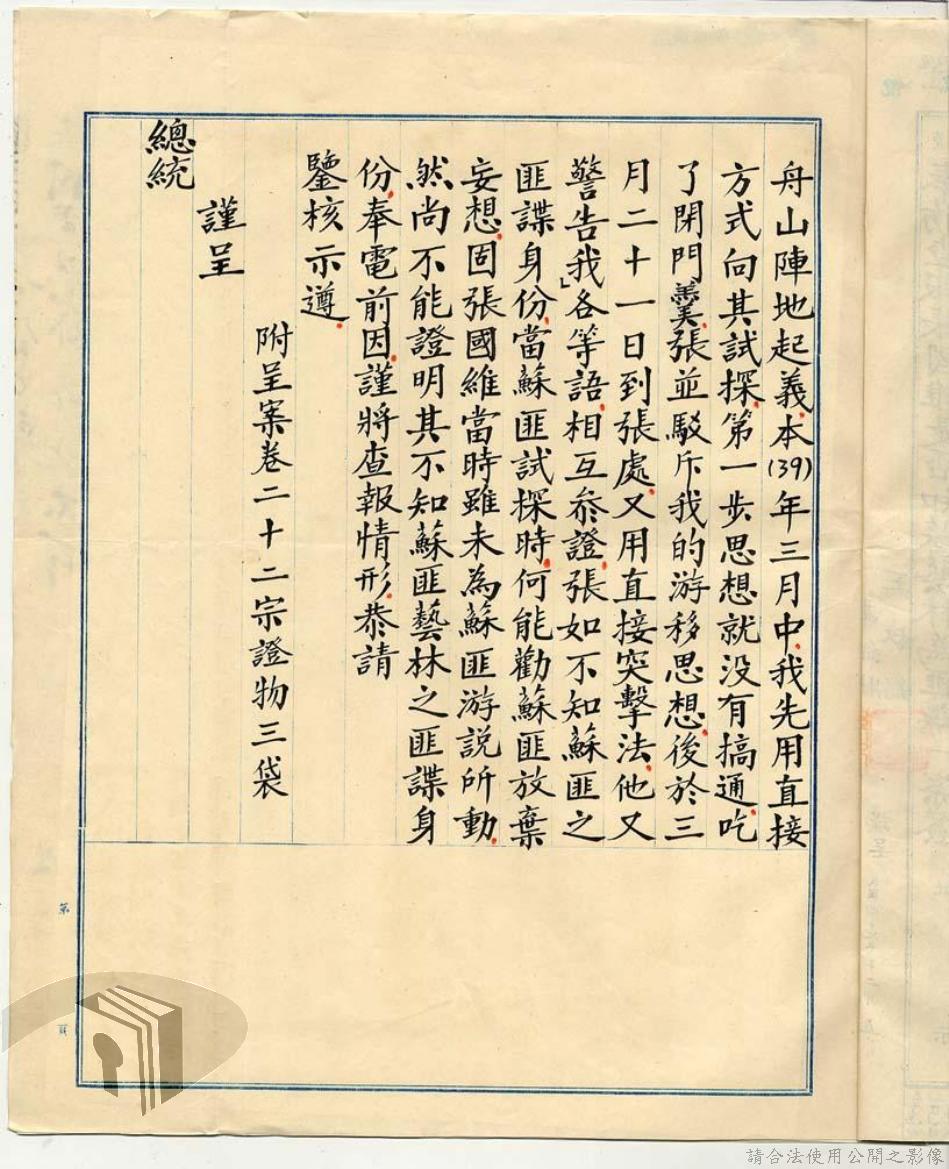 舟山陣地起義、本(39)年三月中、我先用直接
方式向其試探、第一步思想就没有搞通、吃
了閉門羹、張並駁斥我的游移思想、後於三
月二十一日到張處、又用直接突擊法、他又
警告我」各等語、相互參證、張如不知蘇匪之
匪諜身份、當蘇匪試探時、何能勸蘇匪放棄
妄想、固張國維當時雖未為蘇匪游説所動、
然尚不能證明其不知蘇匪藝林之匪諜身
份、奉電前因、謹將查報情形、恭請
鑒核示遵、
附呈案卷二十二宗證物三袋
謹呈
總統
第 頁
請合法使用公開之影像